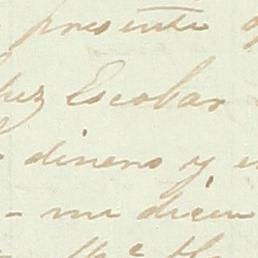 presente
hez Escobar
dinero y
me dicen